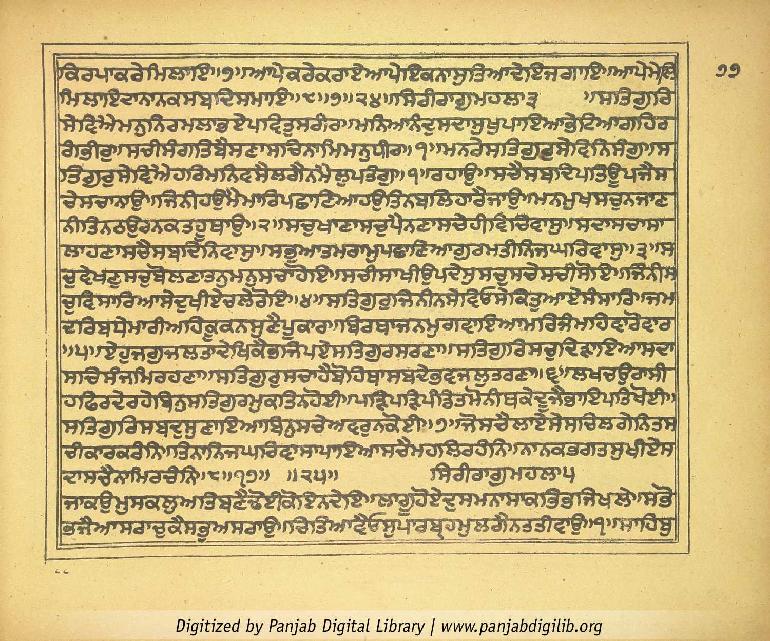 ਕਿਰਪਾਕਰੇਮਿਲਾਇ॥੭॥ਆਪੇਕਰੇਕਰਾਏਆਪੇਇਕਨਾਸੁਤਿਆਦੇਇਜਗਾਇ॥ਆਪੇਮੇਲਿ
ਮਿਲਾਇਦਾਨਾਨਕਸਬਦਿਸਮਾਇ॥੮॥੭॥੨੪॥ਸਿਰੀਰਾਗੁਮਹਲਾ੩ ॥ਸਤਿਗੁਰਿ
ਸੇਵਿਐਮਨੁਨਿਰਮਲਾਭਏਪਵਿਤੁਸਰੀਰ॥ਮਨਿਆਨੰਦੁਸਦਾਸੁਖੁਪਾਇਆਭੇਟਿਆਗਹਿਰ
ਗੰਭੀਰੁ॥ਸਚੀਸੰਗਤਿਬੈਸਣਾਸਚਿਨਾਮਿਮਨੁਧੀਰ॥੧॥ਮਨਰੇਸਤਿਗੁਰੁਸੇਵਿਨਿਸੰਗੁ॥ਸ
ਤਿਗੁਰੁਸੇਵਿਐਹਰਿਮਨਿਵਸੈਲਗੈਨਮੈਲੁਪਤੰਗੁ॥੧॥ਰਹਾਉ॥ਸਚੈਸਬਦਿਪਤਿਊਪਜੈਸ
ਚੇਸਚਾਨਾਉ॥ਜਿਨੀਹਉਮੈਮਾਰਿਪਛਾਣਿਆਹਉਤਿਨਬਲਿਹਾਰੈਜਾਉ॥ਮਨਮੁਖਸਚੁਨਜਾਣ
ਨੀਤਿਨਠਉਰਨਕਤਹੂਥਾਉ॥੨॥ਸਚੁਖਾਣਾਸਚੁਪੈਨਣਾਸਚੇਹੀਵਿਚਿਵਾਸੁ॥ਸਦਾਸਚਾਸਾ
ਲਾਹਣਾਸਚੈਸਬਦਿਨਿਵਾਸੁ॥ਸਭੁਆਤਮਰਾਮੁਪਛਾਣਿਆਗੁਰਮਤੀਨਿਜਘਰਿਵਾਸੁ॥੩॥ਸ
ਚੁਵੇਖਣੁਸਚੁਬੋਲਣਾਤਨੁਮਨੁਸਚਾਹੋਇ॥ਸਚੀਸਾਖੀਉਪਦੇਸੁਸਚੁਸਚੇਸਚੀਸੋਇ॥ਜਿੰਨੀਸ
ਚੁਵਿਸਾਰਿਆਸੇਦੁਖੀਏਚਲੇਰੋਇ॥੪॥ਸਤਿਗੁਰੁਜਿਨੀਨਸੇਵਿਓਸੇਕਿਤੁਆਏਸੰਸਾਰਿ॥ਜਮ
ਦਰਿਬਧੇਮਾਰੀਅਹਿਕੂਕਨਸੁਣੈਪੂਕਾਰ॥ਬਿਰਥਾਜਨਮੁਗਵਾਇਆਮਰਿਜੰਮਹਿਵਾਰੋਵਾਰ
॥੫॥ਏਹੁਜਗੁਜਲਤਾਵੇਖਿਕੈਭਜਿਪਏਸਤਿਗੁਰਸਰਣਾ॥ਸਤਿਗੁਰਿਸਚੁਦਿੜਾਇਆਸਦਾ
ਸਚਿਸੰਜਮਿਰਹਣਾ॥ਸਤਿਗੁਰੁਸਚਾਹੈਬੋਹਿਥਾਸਬਦੇਭਵਜਲੁਤਰਣਾ॥੬॥ਲਖਚਉਰਾਸੀ
ਹਫਿਰਦੇਰਹੇਬਿਨੁਸਤਿਗੁਰਮੁਕਤਿਨਹੋਈ॥ਪੜਿਪੜਿਪੰਡਿਤਮੋਨੀਥਕੇਦੂਜੈਭਾਇਪਤਿਖੋਈ॥
ਸਤਿਗੁਰਿਸਬਦੁਸੁਣਾਇਆਬਿਨੁਸਚੇਅਵਰੁਨਕੋਈ॥੭॥ਜੋਸਚੈਲਾਏਸੇਸਚਿਲਗੇਨਿਤਸ
ਚੀਕਾਰਕਰੰਨਿ॥ਤਿਨਾਨਿਜਘਰਿਵਾਸਾਪਾਇਆਸਚੈਮਹਲਿਰਹੰਨਿ॥ਨਾਨਕਭਗਤਸੁਖੀਏਸ
ਦਾਸਚੈਨਾਮਿਰਚੰਨਿ॥੮॥੧੭॥ ॥੨੫॥ ਸਿਰੀਰਾਗੁਮਹਲਾ੫
ਜਾਕਉਮੁਸਕਲੁਅਤਿਬਣੈਢੋਈਕੋਇਨਦੇਇ॥ਲਾਗੂਹੋਏਦੁਸਮਨਾਸਾਕਭਿਭਜਿਖਲੇ॥ਸਭੋ
ਭਜੈਆਸਰਾਚੁਕੈਸਭੁਅਸਰਾਉ॥ਚਿਤਿਆਵੈਓਸੁਪਾਰਬ੍ਰਹਮੁਲਗੈਨਤਤੀਵਾਉ॥੧॥ਸਾਹਿਬੁ
੭੭
Digitized by Panjab Digital Library | www.panjabdigilib.org